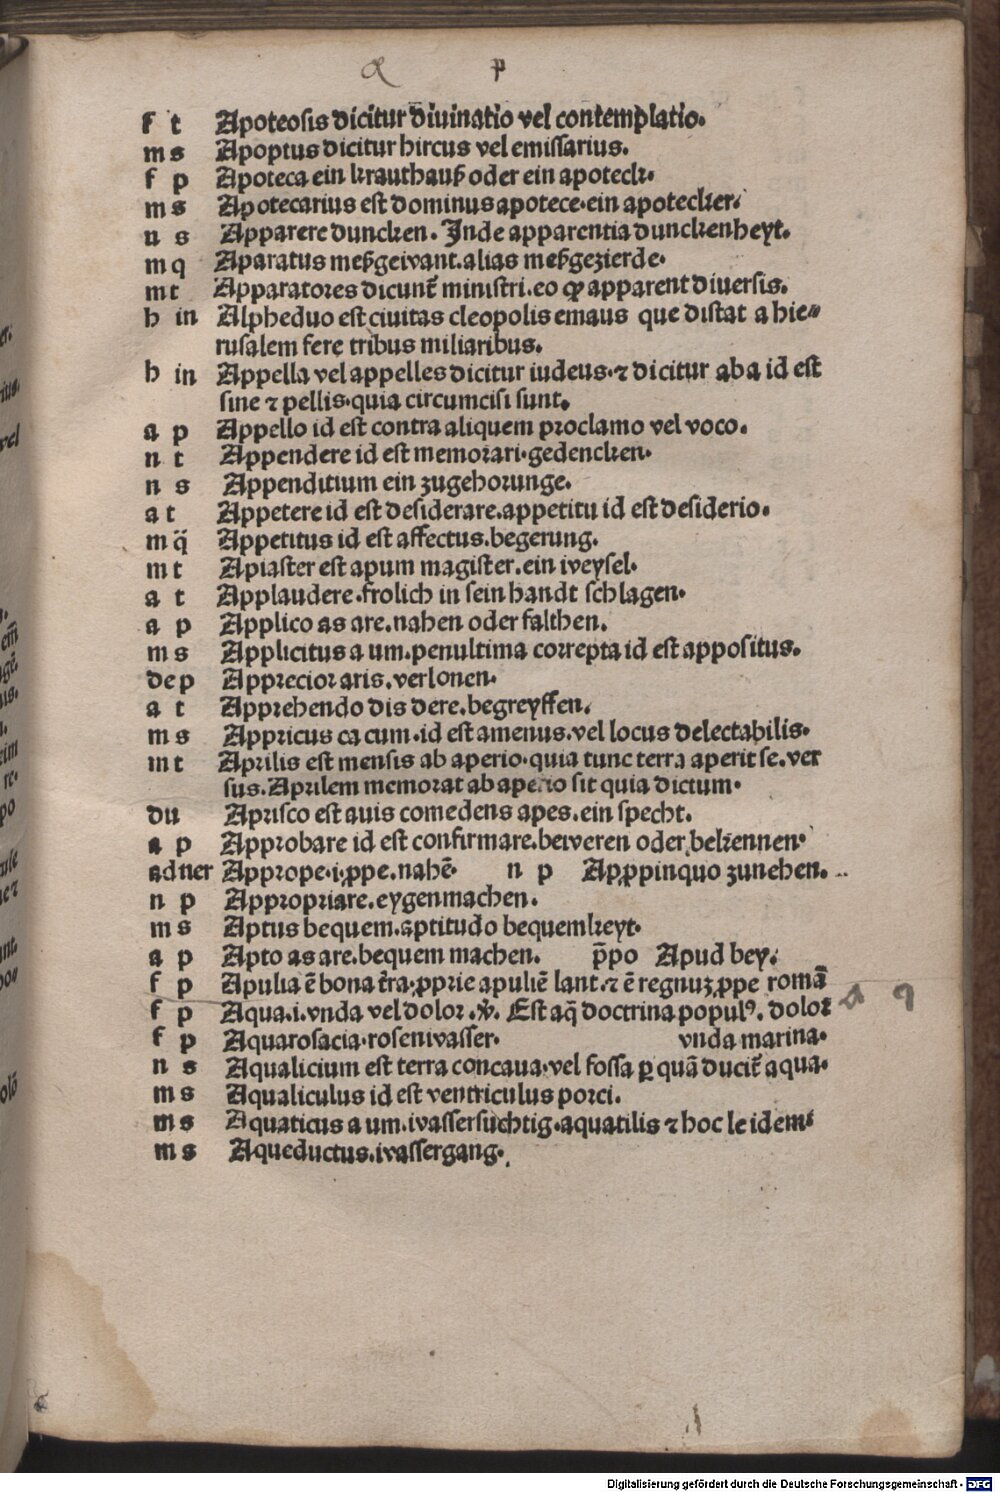 a p
f t Apoteosis dicitur diuinatio vel contemplatio.
m s Apoptus dicitur hircus vel emissarius.
f p Apoteca ein krauthauß oder ein apoteck.
m s Apotecarius est dominus apotece. ein apotecker.
n s Apparere duncken. Inde apparentia dunckenheyt.
m q Aparatus meßgewant. alias meßgezierde.
m t Apparatores dicunt̄ ministri. eo ꝙ apparent diuersis.
h in Alpheduo est ciuitas cleopolis emaus que distat a hie⸗
rusalem fere tribus miliaribus.
h in Appella vel appelles dicitur iudeus. ⁊ dicitur ab a id est
sine ⁊ pellis. quia circumcisi sunt.
a p Appello id est contra aliquem proclamo vel voco.
n t Appendere id est memorari. gedencken.
n s Appenditium ein zugehorunge.
a t Appetere id est desiderare. appetitu id est desiderio.
m q̈ Appetitus id est affectus. begerung.
m t Apiaster est apum magister. ein weysel.
a t Applaudere. frolich in sein handt schlagen.
a p Applico as are. nahen oder falthen.
m s Applicitus a um. penultima correpta id est appositus.
de p Apprecior aris. verlonen.
a t Apprehendo dis dere. begreyffen.
m s Appricus ca cum. id est amenus. vel locus delectabilis.
m t Aprilis est mensis ab aperio. quia tunc terra aperit se. ver
sus. Aprilem memorat ab aperio sit quia dictum.
du Aprisco est auis comedens apes. ein specht.
a p Approbare id est confirmare. beweren oder bekennen.
adner Apprope. i. ꝓpe. nahē. n p Apꝓpinquo zunehen.
n p Appropriare. eygen machen.
m s Aptus bequem. aptitudo bequemkeyt.
a p Apto as are. bequem machen. p̄po Apud bey.
f p Apulia ē bona t̄ra. ꝓprie apuliē lant. ⁊ ē regnuꝫ ꝓpe romā
f p Aqua. i. vnda vel dolor. v̓. Est aq̄ doctrina popul⁹. dolor a q
f p Aquarosacia. rosenwasser. vnda marina.
n s Aqualicium est terra concaua. vel fossa ꝑ quā ducit̄ aqua.
m s Aqualiculus id est ventriculus porci.
m s Aquaticus a um. wassersuchtig. aquatilis ⁊ hoc le idem.
m s Aqueductus. wassergang.
Digitalisierung gefördert durch die Deutsche Forschungsgemeinschaft - DFG